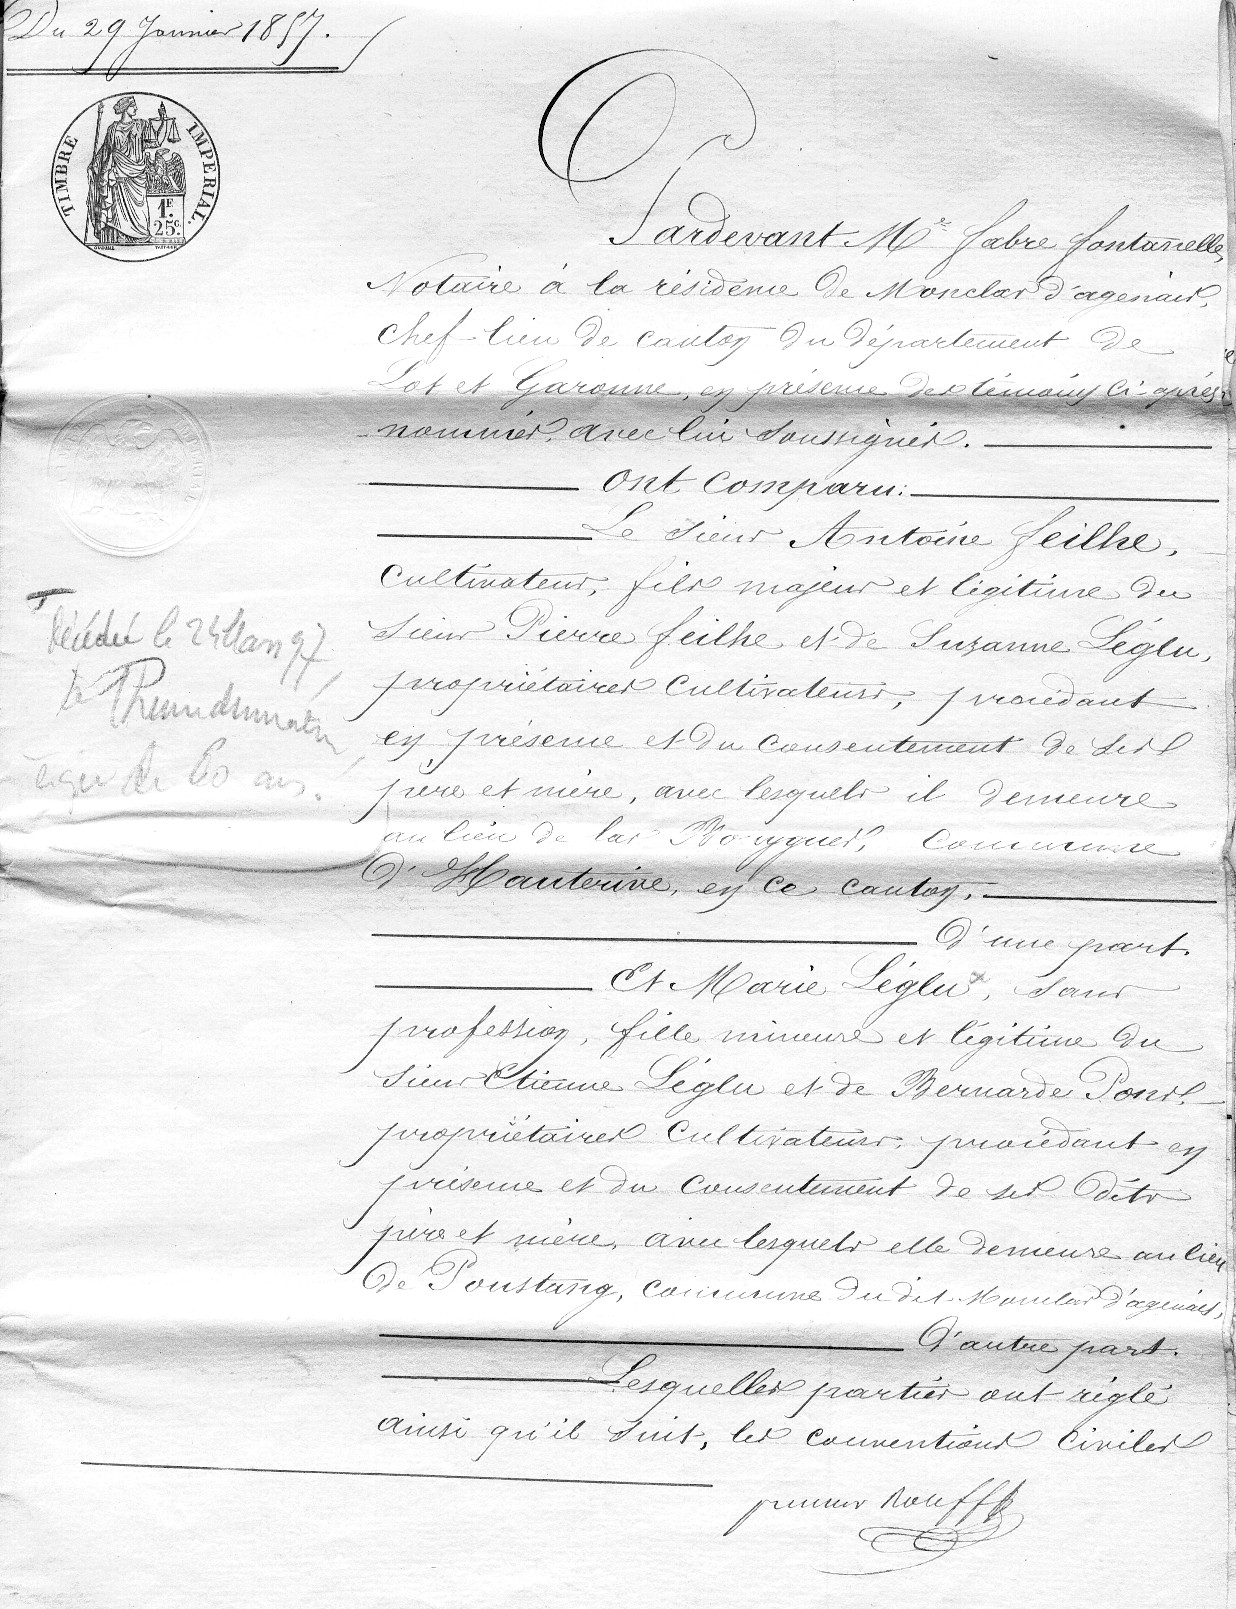 Du 29 Janvier 1857.
TIMBRE IMPERIAL.
1F.
25c.
Pardevant Me fabre fontanelle,
Notaire à la résidence de Monclar d'agenais,
chef-lieu de canton du département de
Lot et Garonne, en présence des témoins ci-après
nommés, avec lui soussignés.
ont comparu:
Le sieur Antoine feilhe,
cultivateur, fils majeur et légitime du
sieur Pierre feilhe et de Suzanne Léglu,
propriétaires cultivateurs, procédant
en présence et du consentement de ses
père et mère, avec lesquels il demeure
au lieu de las Bouygues, commune
d'Hauterive, en ce canton,
D'une part.
Et Marie Léglu, sans
profession, fille mineure et légitime du
sieur Etienne Léglu et de Bernarde Pons,
propriétaires cultivateurs, procédant en
présence et du consentement de ses dits
père et mère, avec lesquels elle demeure au lieu
de Poustang, commune du dit Monclar d'agenais,
D'autre part.
Lesquelles parties ont réglé
ainsi qu'il suit, les conventions civiles
décédé le 24 Mars 97
âgée de 60 ans.
premier